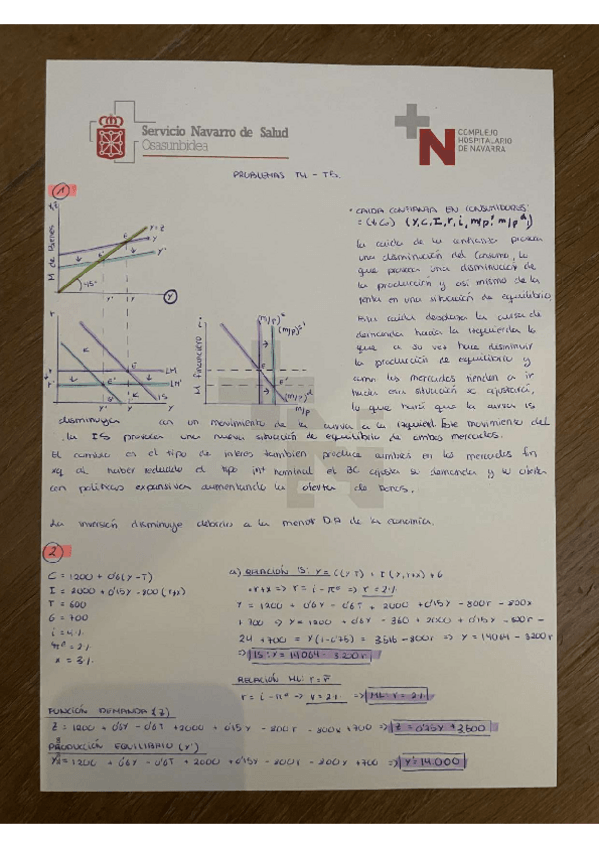 Servicio Navarro de Salud
Osasunbidea
COMPLEJO
HOSPITALARIO
DE NAVARRA
PROBLEMAS T4 - T5.
1
* CAIDA CONFIANZA EN CONSUMIDORES
= (↓C₀) (Y, C, I, r, i, m/p! m/p d,)
La caída de la confianza provoca
una disminución del consumo, lo
que provoca una disminución de
la producción y así mismo de la
renta en una situación de equilibrio
Esta caída desplaza la curva de
demanda hacia la izquierda lo
que a su vez hace disminuir
la producción de equilibrio y
como los mercados tienden a ir
hacia esa situación se ajustará,
lo que hará que la curva IS
disminuya con un movimiento de la curva a la izquierda. Este movimiento del
la IS provoca una nueva situación de equilibrio de ambos mercados.
El cambio es el tipo de interés también produce cambios en los mercados fin
xq al haber reducido el tipo int nominal el BC ajusta su demanda y su oferta
con políticas expansivas aumentando la oferta de bonos.
La inversión disminuye debido a la menor DA de la economía.
M de Bienes
45°
Y=Z
LM
LM'
IS
M financiero
(m/p)s
(m/p)s'
(m/p)d
m/p
2
C = 1200 + 0'6(Y-T)
I = 2000 + 0'15Y - 800(r+x)
T = 600
G = 700
i = 4%
πe = 2%
x = 3%
a) RELACIÓN IS: Y = C(Y-T) + I(Y, r+x) + G
r = i - πe => r = 2%
Y = 1200 + 0'6Y - 0'6T + 2000 + 0'15Y - 800r - 800x
+ 700 => Y = 1200 + 0'6Y - 360 + 2000 + 0'15Y - 800r -
24 + 700 = Y(1-0'75) = 3516 - 800r => Y = 14064 - 3200r
=> IS: Y = 14064 - 3200r
RELACIÓN ML: r = r̄
r = i - πe -> r = 2% => ML: r = 2%
FUNCIÓN DEMANDA (Z)
Z = 1200 + 0'6Y - 0'6T + 2000 + 0'15Y - 800r - 800x + 700 => Z = 0'75Y + 3500
PRODUCCIÓN EQUILIBRIO (Y')
Y = 1200 + 0'6Y - 0'6T + 2000 + 0'15Y - 800r - 800x + 700 => Y = 14.000